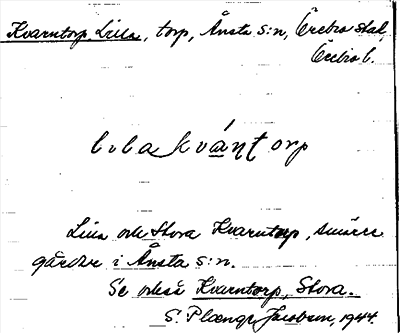 Kvarntorp, Lilla, torp, Ånsta s:n, Örebro stad,
Örebro l.
Lilla och Stora Kvarntorp, smärre
gårdar i Ånsta s:n.
Se också Kvarntorp, Stora.
S. Jacobson, 1944.